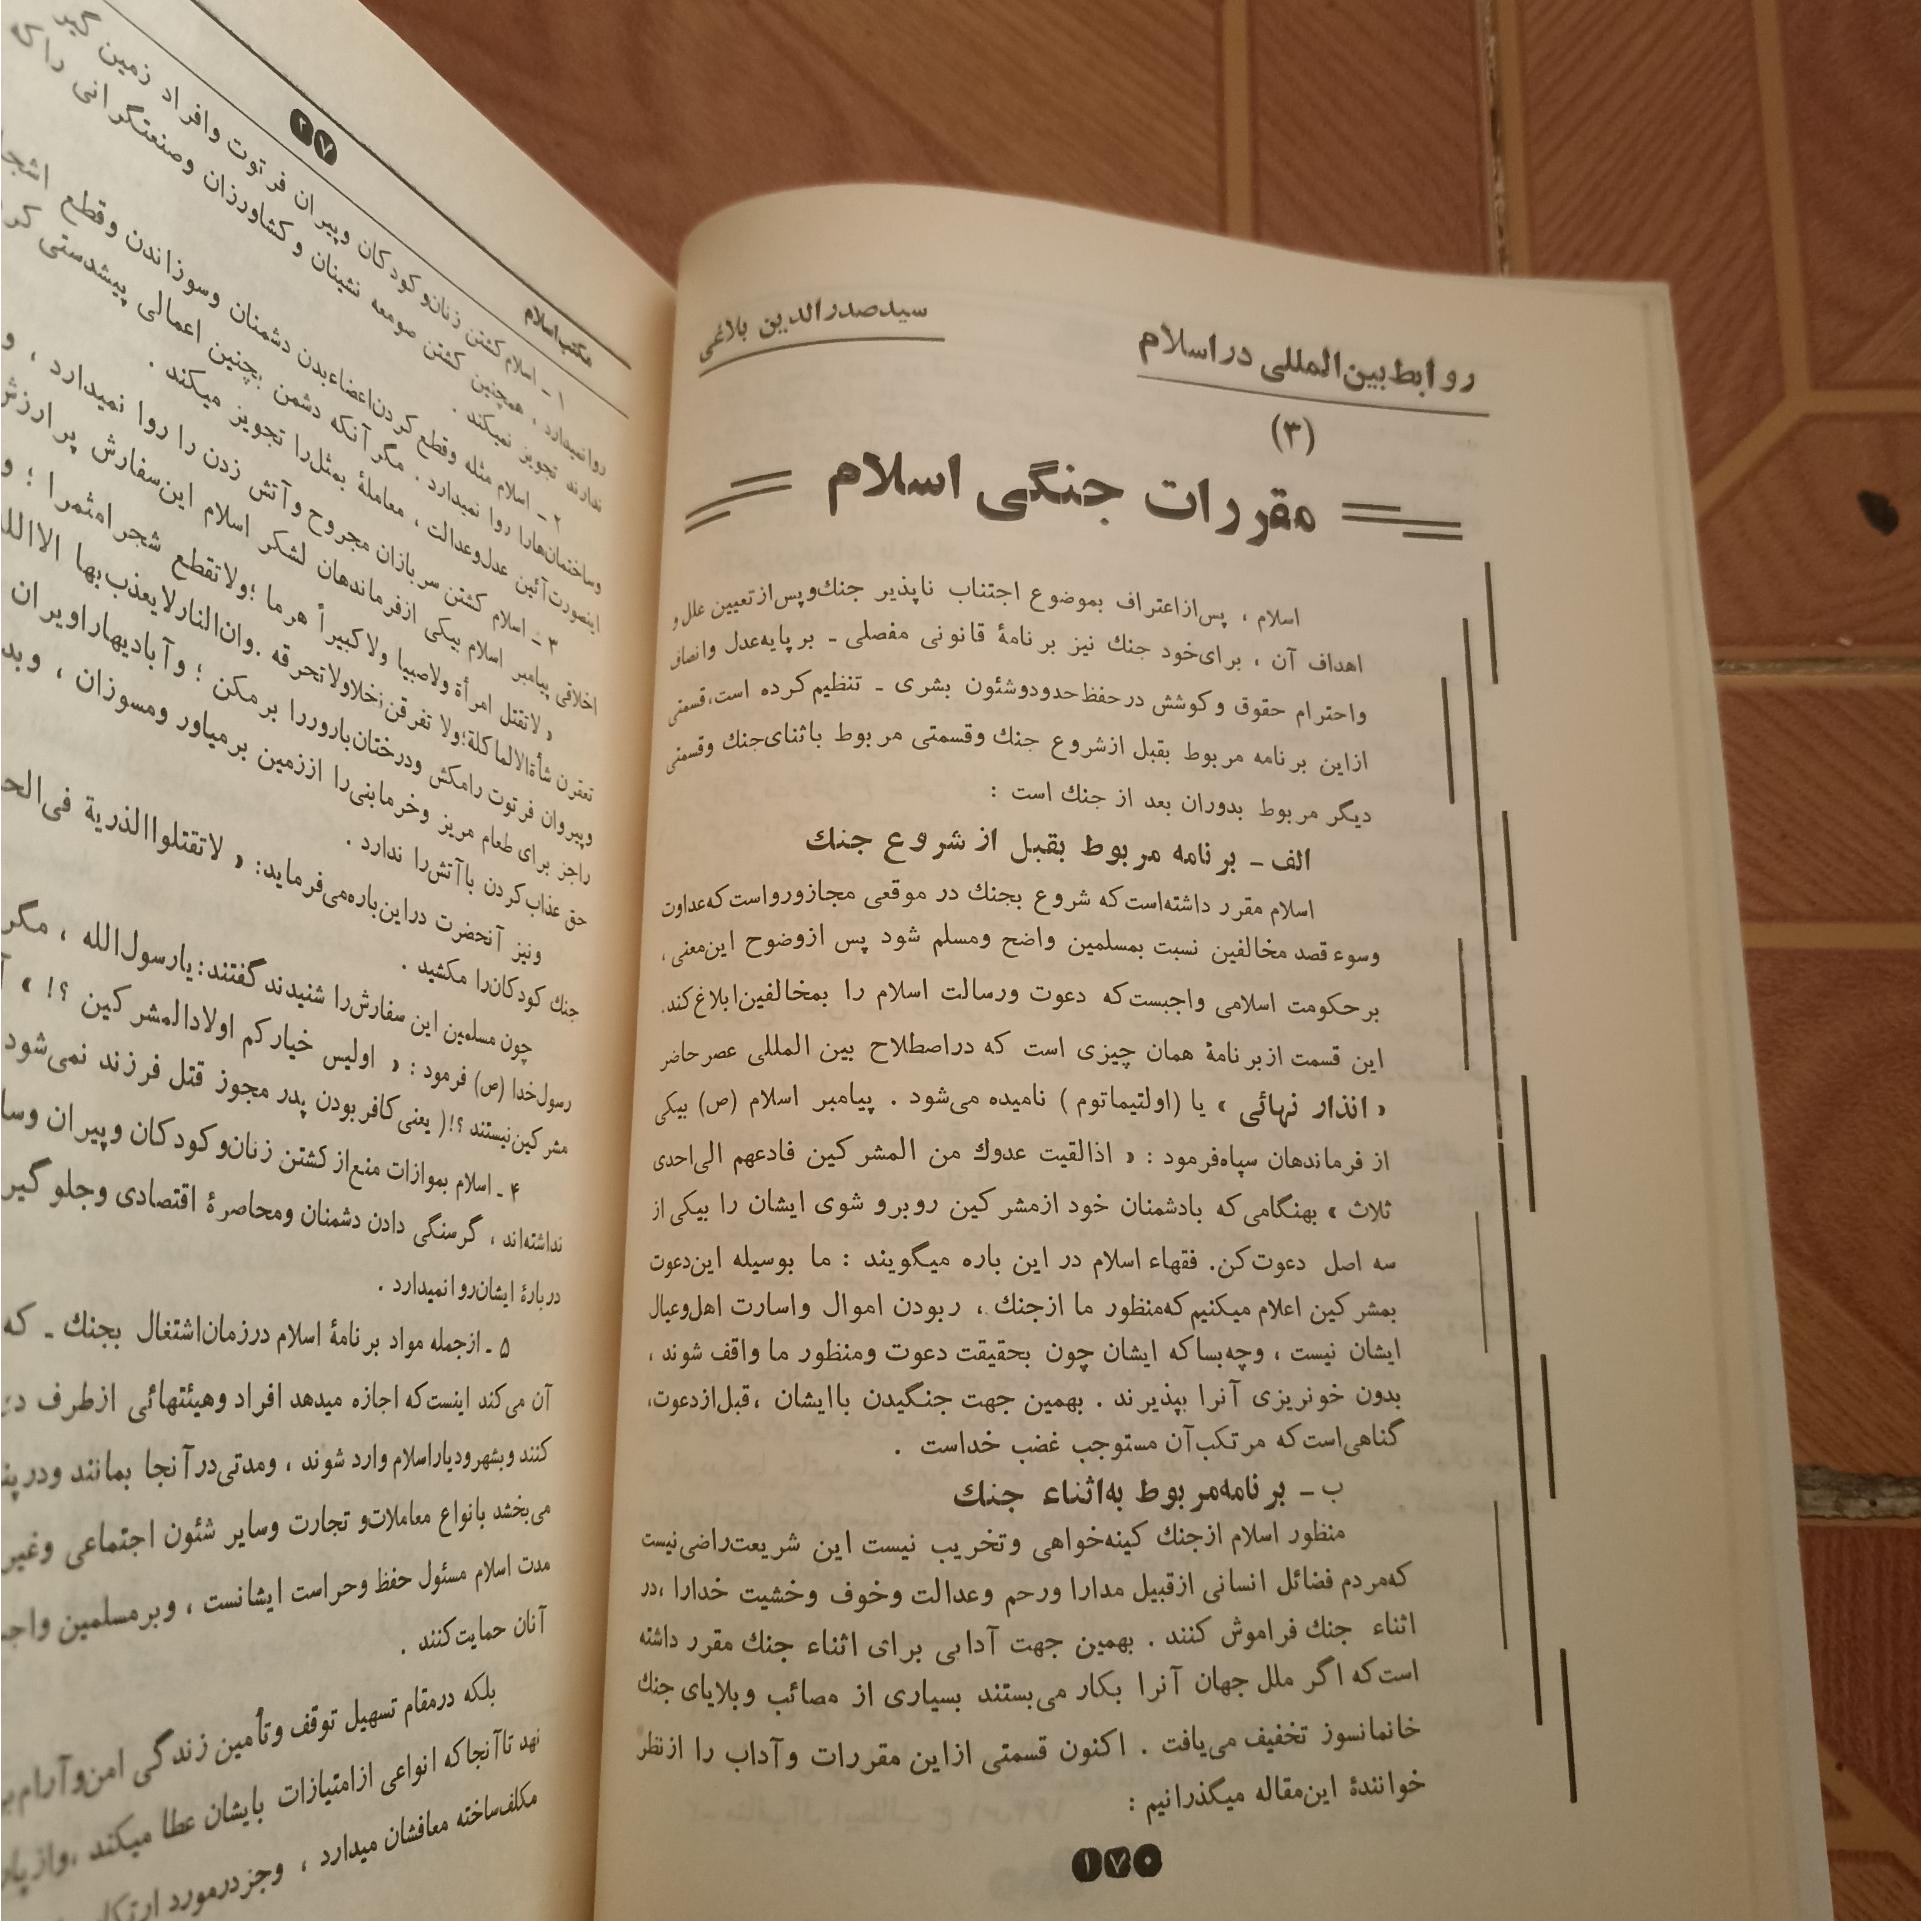 سیدصدرالدین بلاغی
روابط بین‌المللی در اسلام
(۳)
مقررات جنگی اسلام
اسلام ، پس‌ازاعتراف بموضوع اجتناب ناپذیر جنك‌وپس‌ازتعیین علل و
اهداف آن ، برای‌خود جنك نیز برنامهٔ قانونی مفصلی ـ برپایه‌عدل وانصاف
واحترام حقوق وکوشش درحفظ‌حدودوشئون بشری ـ تنظیم‌کرده است،قسمتی
ازاین برنامه مربوط بقبل ازشروع جنك وقسمتی مربوط باثنای‌جنك وقسمتی
دیگر مربوط بدوران بعد از جنك است :
الف ـ برنامه مربوط بقبل از شروع جنك
اسلام مقرر داشته‌است‌که شروع بجنك در موقعی مجازورواست‌که‌عداوت
وسوء قصد مخالفین نسبت بمسلمین واضح ومسلم شود پس ازوضوح این‌معنی ،
برحکومت اسلامی واجبست‌که دعوت ورسالت اسلام را بمخالفین‌ابلاغ‌کند.
این قسمت ازبرنامهٔ همان چیزی است که دراصطلاح بین المللی عصرحاضر
« انذار نهائی » یا (اولتیماتوم ) نامیده می‌شود . پیامبر اسلام (ص) بیکی
از فرماندهان سپاه‌فرمود : « اذالقیت عدوك من المشرکین فادعهم الی‌احدی
ثلاث » بهنگامی‌که بادشمنان خود ازمشرکین روبرو شوی ایشان را بیکی از
سه اصل دعوت‌کن. فقهاء اسلام در این باره میگویند : ما بوسیله این‌دعوت
بمشرکین اعلام میکنیم‌که‌منظور ما ازجنك ، ربودن اموال واسارت اهل‌وعیال
ایشان نیست ، وچه‌بساکه ایشان چون بحقیقت دعوت ومنظور ما واقف شوند ،
بدون خونریزی آنرا بپذیرند . بهمین جهت جنگیدن باایشان ،قبل‌ازدعوت،
گناهی‌است‌که مرتکب‌آن مستوجب غضب خداست .
ب ـ برنامه‌مربوط به‌اثناء جنك
منظور اسلام ازجنك کینه‌خواهی وتخریب نیست این شریعت‌راضی‌نیست
که‌مردم فضائل انسانی ازقبیل مدارا ورحم وعدالت وخوف وخشیت خدارا ،در
اثناء جنك فراموش کنند . بهمین جهت آدابی برای اثناء جنك مقرر داشته
است‌که اگر ملل جهان آنرا بکار می‌بستند بسیاری از مصائب وبلایای جنك
خانمانسوز تخفیف می‌یافت . اکنون قسمتی ازاین مقررات وآداب را ازنظر
خوانندهٔ این‌مقاله میگذرانیم :
۱۷۰
۲۷
مکتب‌اسلام
۱ ـ اسلام کشتن زنان‌وکودکان وپیران فرتوت وافراد زمین گیر
روانمیدارد ، همچنین کشتن صومعه نشینان وکشاورزان وصنعتگرانی راکه
ندارند تجویز نمیکند .
۲ ـ اسلام مثله وقطع کردن‌اعضاءبدن دشمنان وسوزاندن وقطع
وساختمان‌هارا روا نمیدارد . مگرآنکه دشمن بچنین اعمالی پیشدستی
اینصورت‌آئین عدل‌وعدالت ، معاملهٔ بمثل‌را تجویز میکند .
۳ ـ اسلام کشتن سربازان مجروح وآتش زدن را روا نمیدارد ، و
اخلاقی پیامبر اسلام بیکی ازفرماندهان لشکر اسلام این‌سفارش پرارزش
« لاتقتل امرأة ولاصبیا ولاکبیراً هرما ؛ولاتقطع شجرامثمرا ؛ و
تعقرن شأةالالماکلة؛ولا تفرقن‌نخلاولاتحرقه .وان‌النارلایعذب‌بها الاالله
وپیروان فرتوت رامکش ودرختان‌باروررا برمکن ؛ وآبادیهاراویران
راجز برای طعام مریز وخرمابنی‌را اززمین برمیاور ومسوزان ، وبد
حق عذاب‌کردن باآتش‌را ندارد .
ونیز آنحضرت دراین‌باره‌می‌فرماید: « لاتقتلواالذریة فی‌الحر
جنك کودکان‌را مکشید .
چون مسلمین این سفارش‌را شنیدند گفتند:یارسول‌الله ، مگر
رسول‌خدا (ص) فرمود : « اولیس خیارکم اولادالمشرکین ؟! »
مشرکین‌نیستند ؟!( یعنی‌کافربودن پدر مجوز قتل فرزند نمی‌شود
۴ ـ اسلام بموازات منع‌از کشتن زنان‌وکودکان وپیران
نداشته‌اند ، گرسنگی دادن دشمنان ومحاصرهٔ اقتصادی وجلوگیر
دربارهٔ ایشان‌روانمیدارد .
۵ ـ ازجمله مواد برنامهٔ اسلام درزمان‌اشتغال بجنك ـ که
آن می‌کند اینست‌که اجازه میدهد افراد وهیئتهائی ازطرف
کنند وبشهرودیاراسلام وارد شوند ، ومدتی‌درآنجا بمانند
می‌بخشد بانواع معاملات‌و تجارت وسایر شئون اجتماعی وغیر
مدت اسلام مسئول حفظ وحراست ایشانست ، وبرمسلمین
آنان حمایت‌کنند .
بلکه درمقام تسهیل توقف وتأمین زندگی امن‌وآرام
نهد تاآنجاکه انواعی ازامتیازات بایشان عطا میکند ،
مکلف‌ساخته معافشان میدارد ، وجزدرمورد